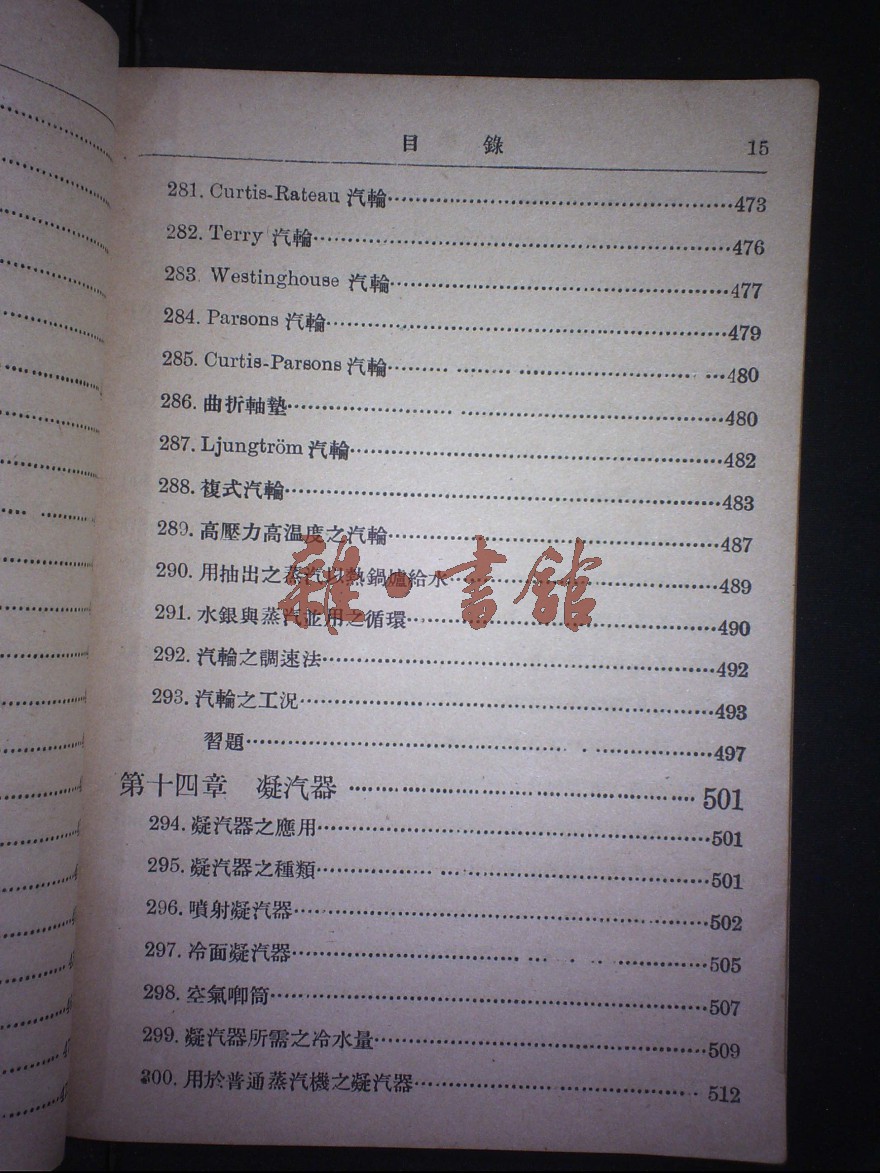 目錄 15
281. Curtis-Rateau 汽輪 473
282. Terry 汽輪 476
283. Westinghouse 汽輪 477
284. Parsons 汽輪 479
285. Curtis-Parsons 汽輪 480
286. 曲折軸墊 480
287. Ljungtröm 汽輪 482
288. 複式汽輪 483
289. 高壓力高溫度之汽輪 487
290. 用抽出之蒸汽以熱鍋爐給水 489
291. 水銀與蒸汽並用之循環 490
292. 汽輪之調速法 492
293. 汽輪之工況 493
習題 497
第十四章 凝汽器 501
294. 凝汽器之應用 501
295. 凝汽器之種類 501
296. 噴射凝汽器 502
297. 冷面凝汽器 505
298. 空氣唧筒 507
299. 凝汽器所需之冷水量 509
300. 用於普通蒸汽機之凝汽器 512
雜·書館